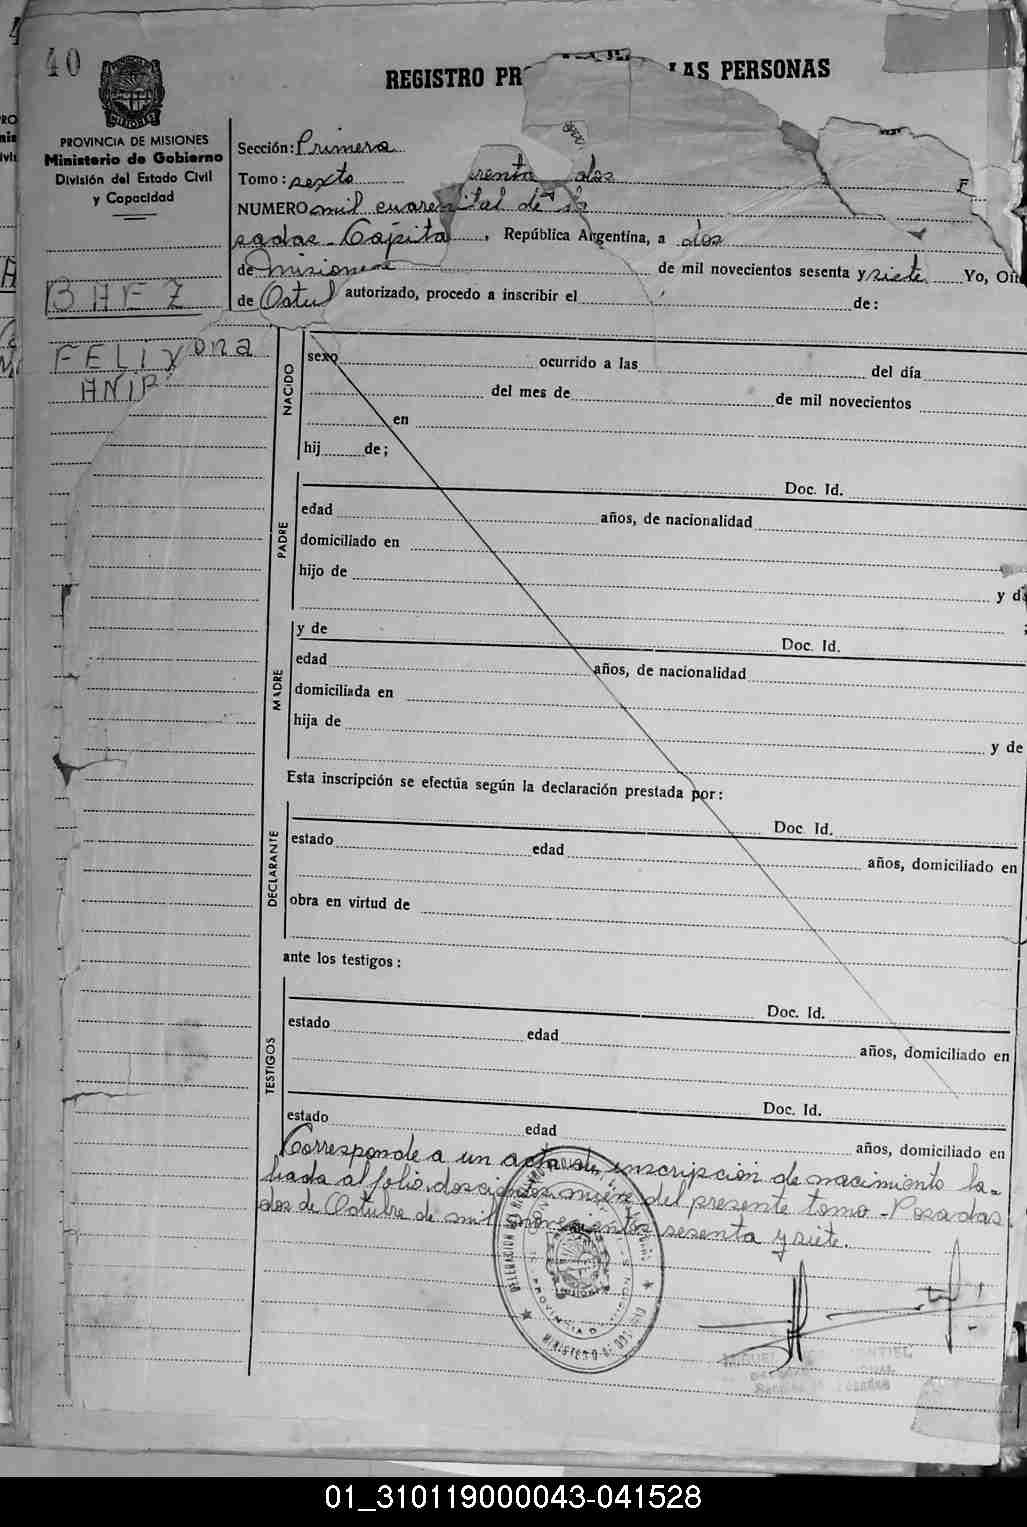 40
REGISTRO PR LAS PERSONAS
PROVINCIA DE MISIONES
Ministerio de Gobierno
División del Estado Civil
y Capacidad
Sección: Primera
Tomo: sexto renta dos
NUMERO mil cuaren ital de
sadas - Capital, República Argentina, a dos
de misiones de mil novecientos sesenta y siete Yo, Ofi
de Octu autorizado, procedo a inscribir el de:
FELI ona
NACIDO
sexo ocurrido a las del día
del mes de de mil novecientos
en
hij de;
PADRE
Doc. Id.
edad años, de nacionalidad
domiciliado en
hijo de
y de
MADRE
y de Doc. Id.
edad años, de nacionalidad
domiciliada en
hija de
y de
Esta inscripción se efectúa según la declaración prestada por:
DECLARANTE
Doc Id.
estado edad años, domiciliado en
obra en virtud de
ante los testigos:
TESTIGOS
Doc. Id.
estado edad años, domiciliado en
Doc. Id.
estado edad años, domiciliado en
Corresponde a un acta de inscripción de nacimiento la-
brada al folio doscientos nueve del presente tomo - Posadas
dos de Octubre de mil novecientos sesenta y siete.
01_310119000043-041528